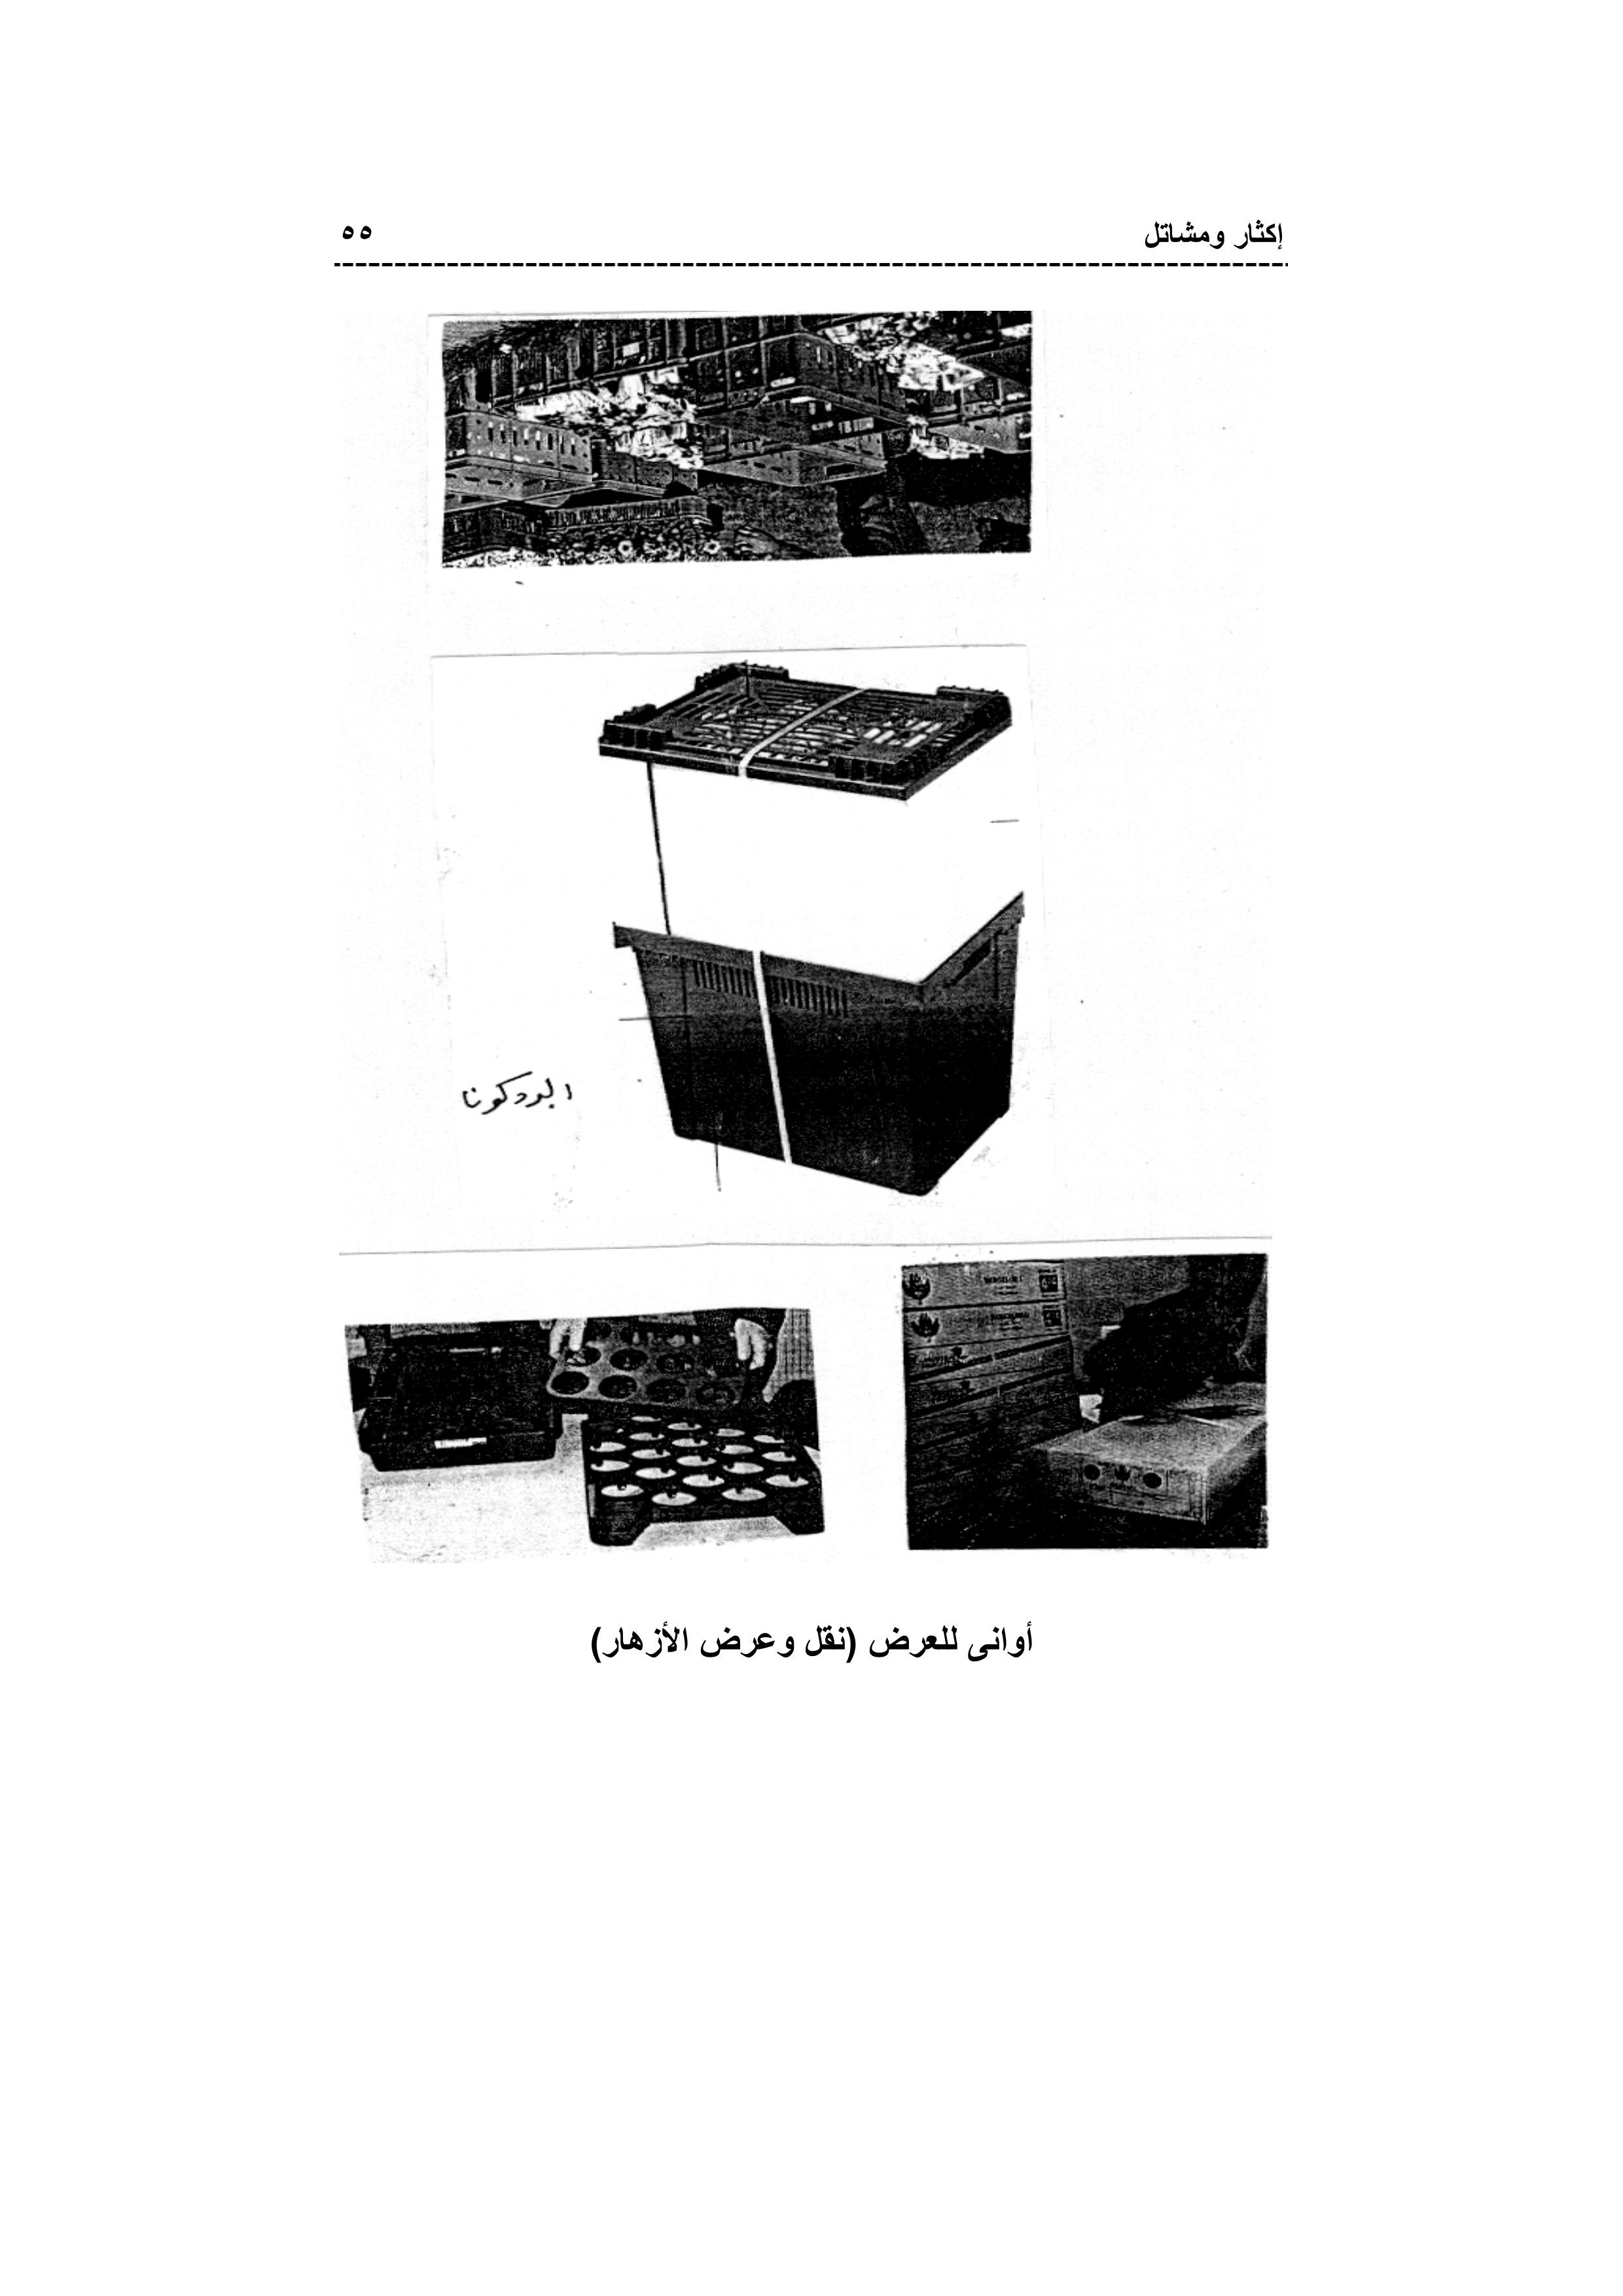 إكثار ومشاتل ٥٥
البروكونا
أوانى للعرض (نقل وعرض الأزهار)